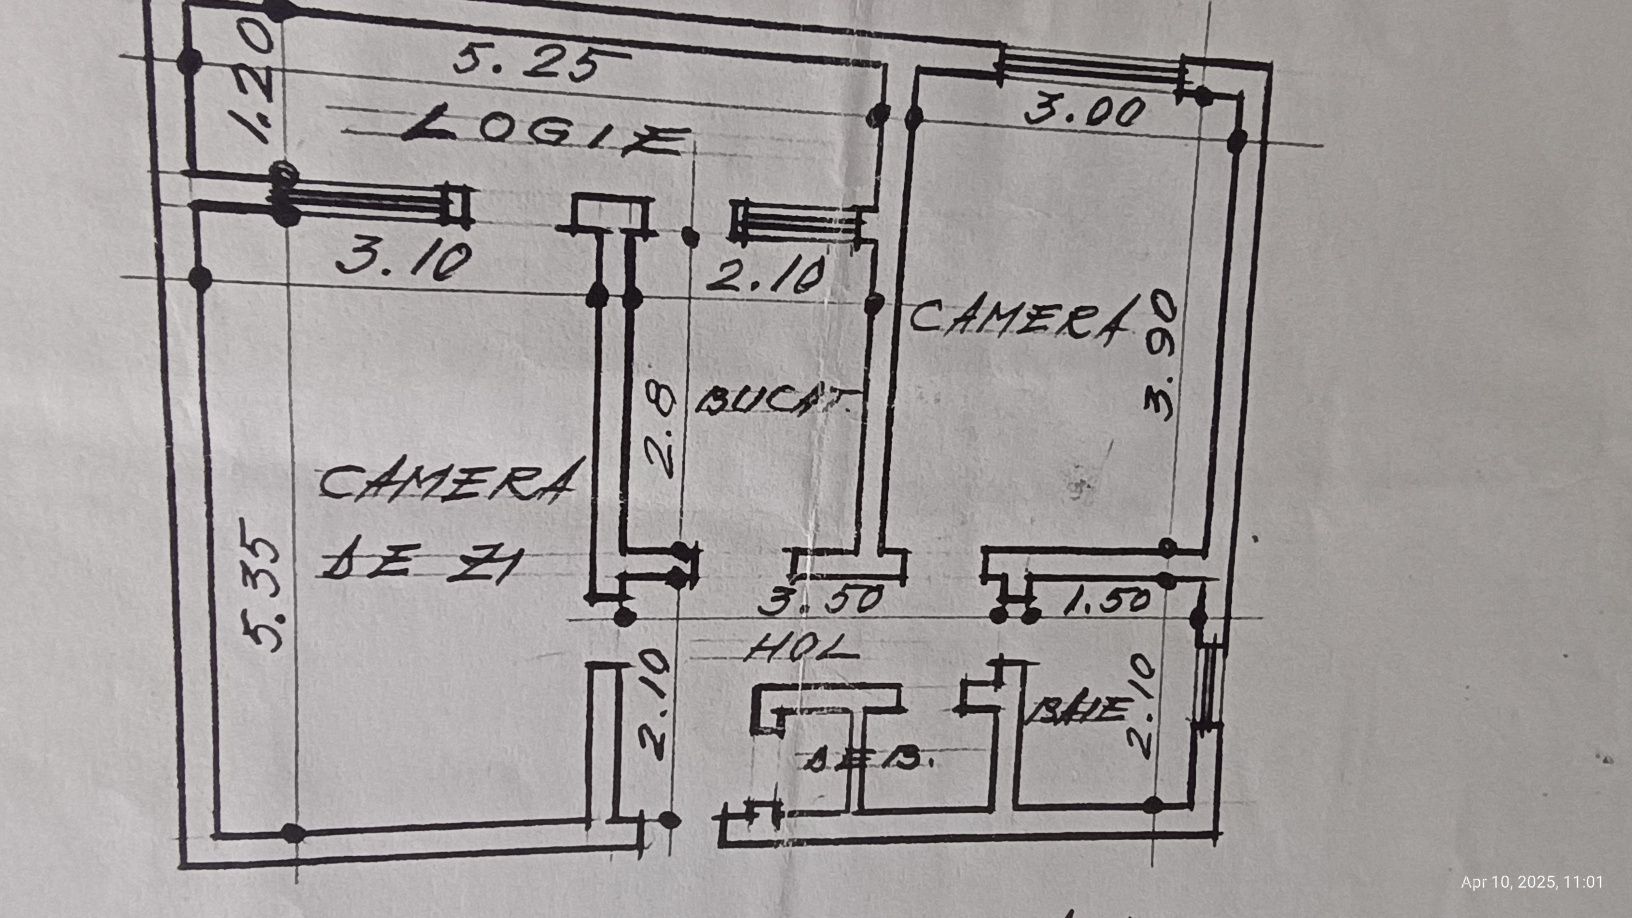 1.20
5.25
LOGIE
3.00
3.10
2.10
CAMERA
3.90
2.8
BUCAT.
CAMERA
DE ZI
5.35
3.50
1.50
HOL
2.10
BAIE
2.10
DEB.
Apr 10, 2025, 11:01